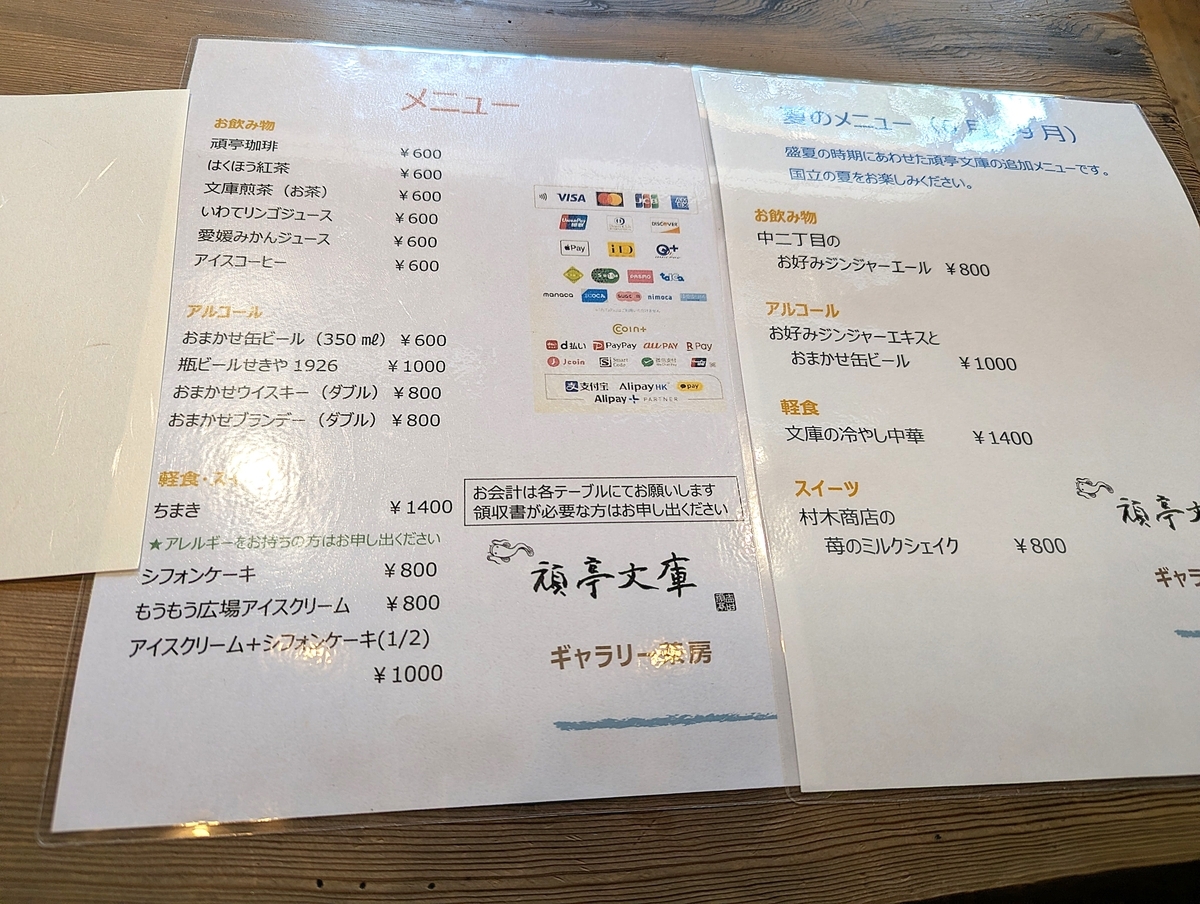 メニュー
お飲み物
頑亭珈琲 ￥600
はくほう紅茶 ￥600
文庫煎茶（お茶） ￥600
いわてリンゴジュース ￥600
愛媛みかんジュース ￥600
アイスコーヒー ￥600
アルコール
おまかせ缶ビール（350 ㎖） ￥600
瓶ビールせきや 1926 ￥1000
おまかせウイスキー（ダブル） ￥800
おまかせブランデー（ダブル） ￥800
軽食・ス
ちまき ￥1400
★アレルギーをお持ちの方はお申し出ください
シフォンケーキ ￥800
もうもう広場アイスクリーム ￥800
アイスクリーム＋シフォンケーキ(1/2)
￥1000
VISA JCB
UnionPay DISCOVER
Pay iD
PASMO
manaca ICOCA nimoca
Coin+
d払い PayPay au PAY R Pay
J coin Smart Code
支付宝 AlipayHK pay
Alipay+ PARTNER
お会計は各テーブルにてお願いします
領収書が必要な方はお申し出ください
頑亭文庫
ギャラリー茶房
夏のメニュー
月）
盛夏の時期にあわせた頑亭文庫の追加メニューです。
国立の夏をお楽しみください。
お飲み物
中二丁目の
お好みジンジャーエール ￥800
アルコール
お好みジンジャーエキスと
おまかせ缶ビール ￥1000
軽食
文庫の冷やし中華 ￥1400
スイーツ
村木商店の
苺のミルクシェイク ￥800
頑亭文
ギャラ